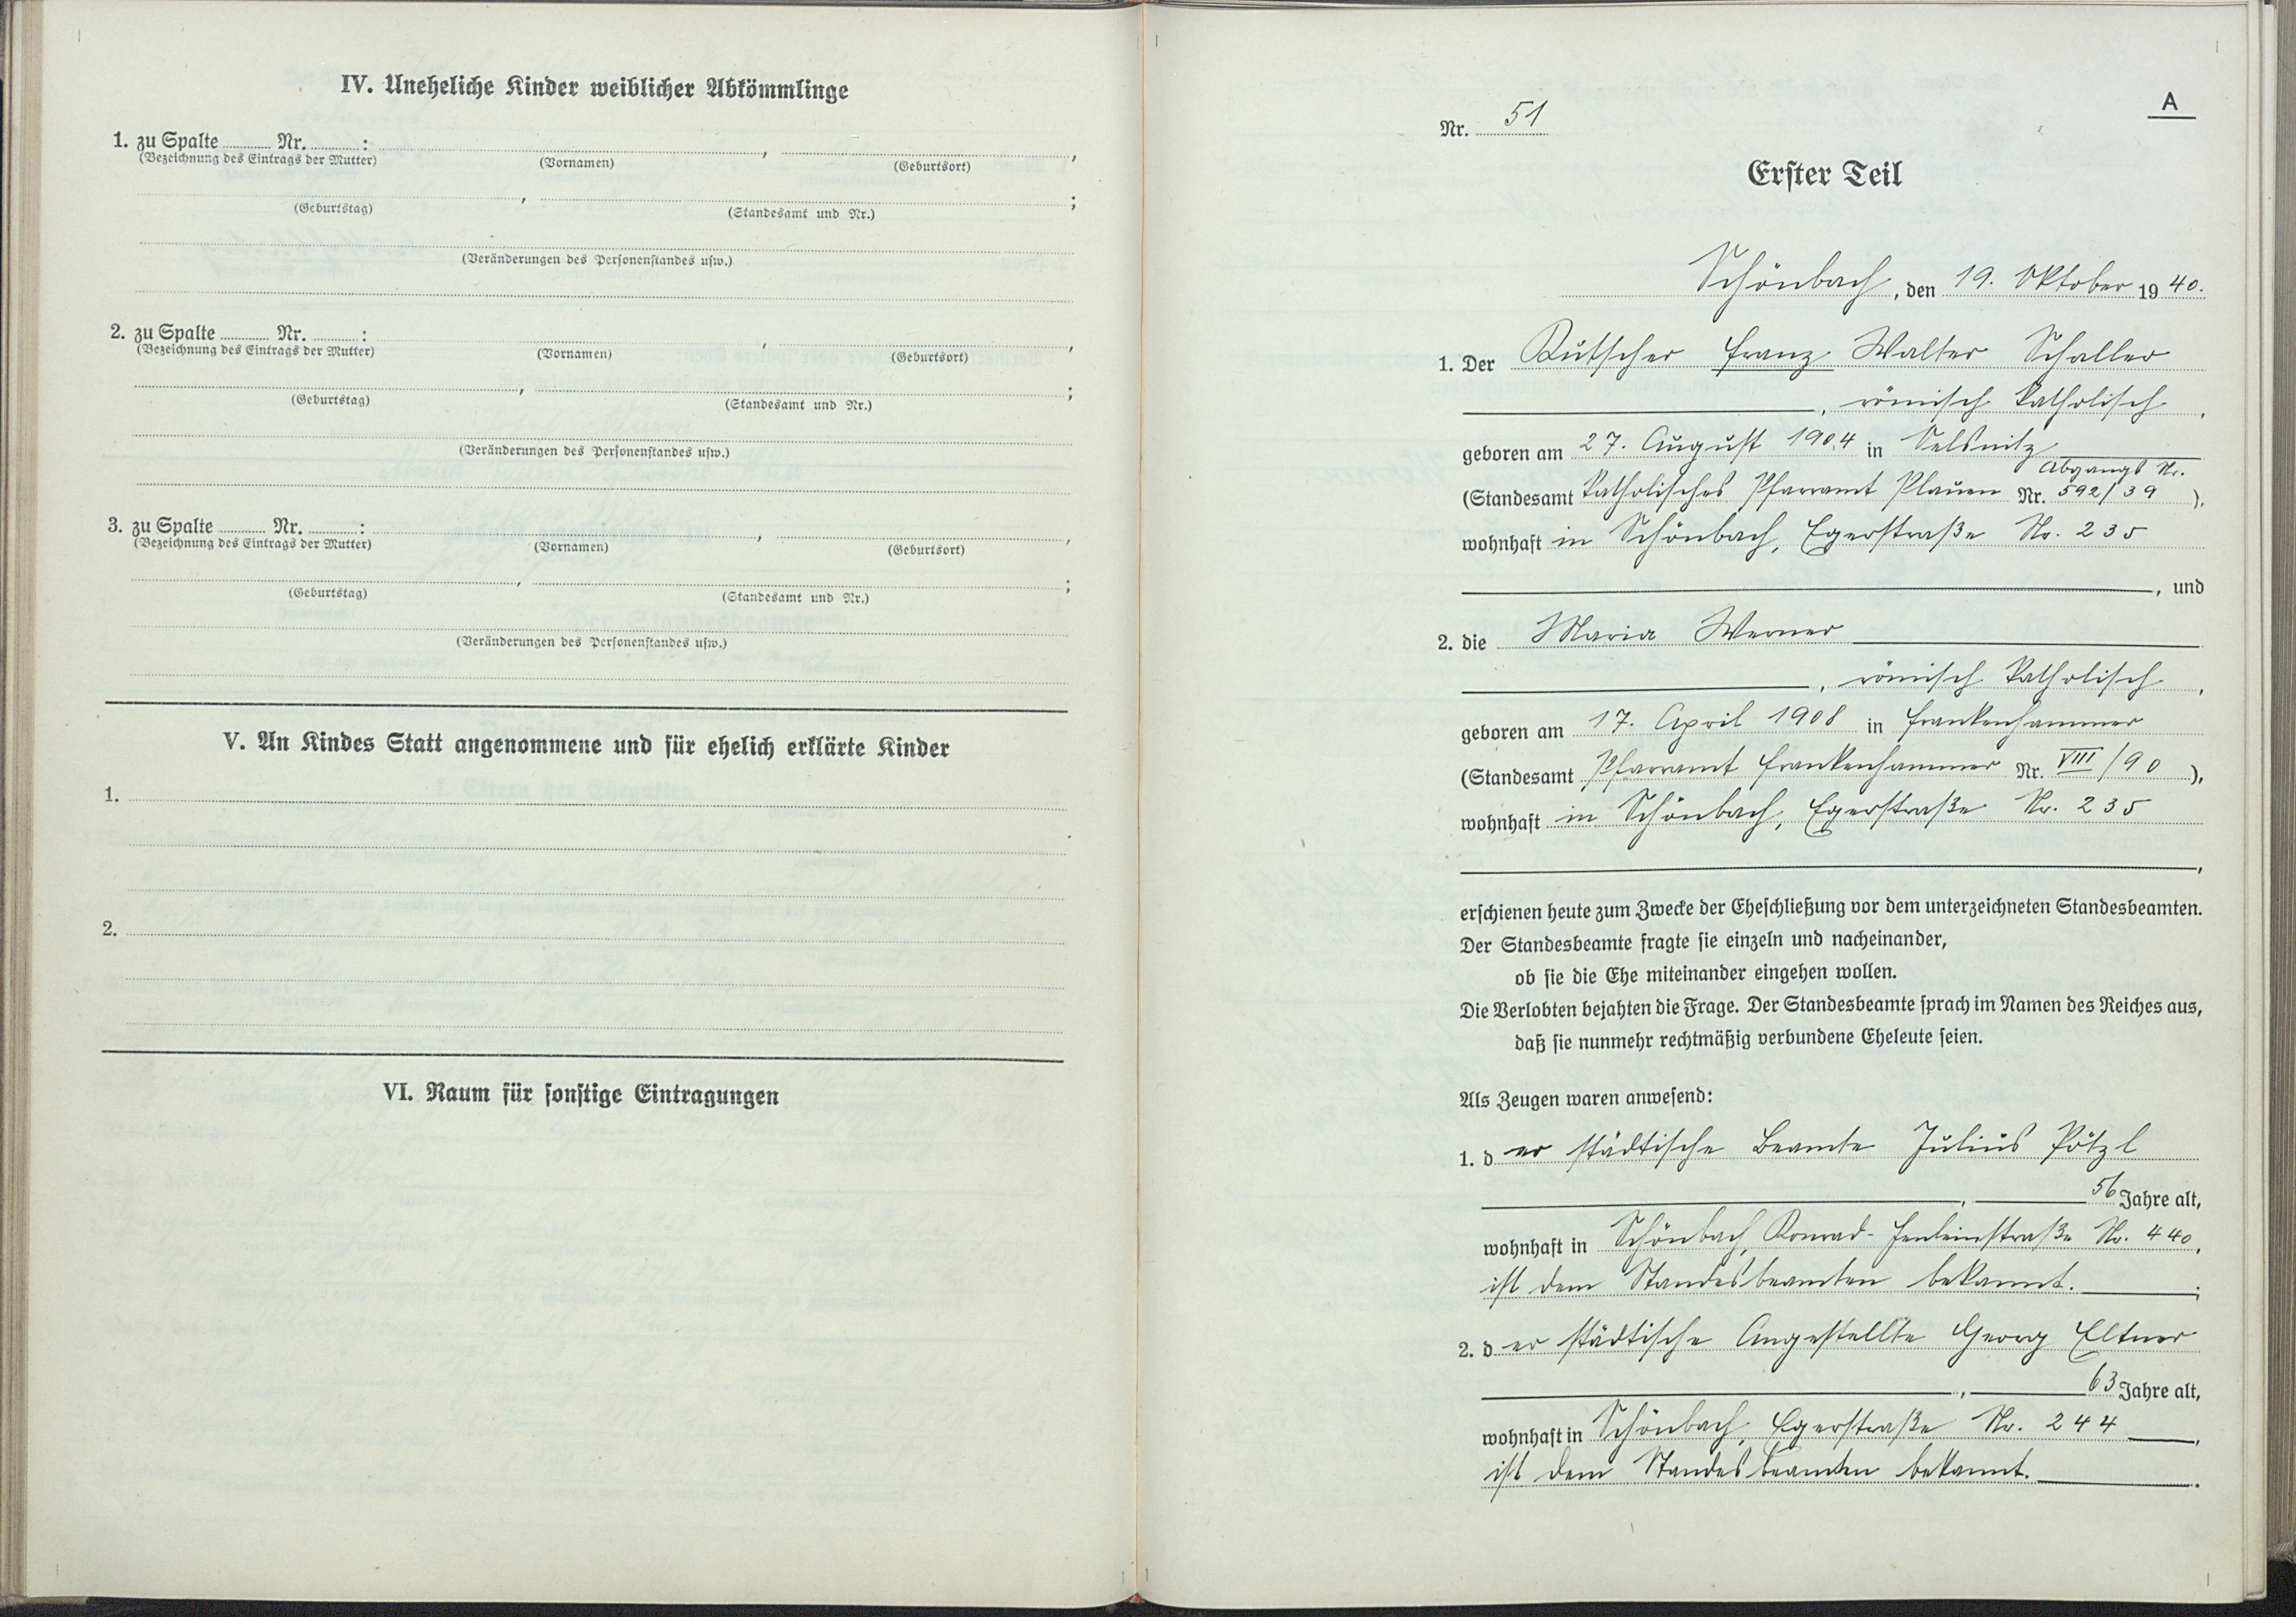 IV. Uneheliche Kinder weiblicher Abkömmlinge
1. zu Spalte ........ Nr. ........:
(Bezeichnung des Eintrags der Mutter) (Vornamen) , (Geburtsort) ,
(Geburtstag) , (Standesamt und Nr.) ;
(Veränderungen des Personenstandes usw.)
2. zu Spalte ........ Nr. ........:
(Bezeichnung des Eintrags der Mutter) (Vornamen) , (Geburtsort) ,
(Geburtstag) , (Standesamt und Nr.) ;
(Veränderungen des Personenstandes usw.)
3. zu Spalte ........ Nr. ........:
(Bezeichnung des Eintrags der Mutter) (Vornamen) , (Geburtsort) ,
(Geburtstag) , (Standesamt und Nr.) ;
(Veränderungen des Personenstandes usw.)
V. An Kindes Statt angenommene und für ehelich erklärte Kinder
1.
2.
VI. Raum für sonstige Eintragungen
A
Nr. 51
Erster Teil
Schönbach, den 19. Oktober 1940.
1. Der Kutscher Franz Walter Schaller
, römisch katholisch ,
geboren am 27. August 1904 in Oelsnitz
Abgangs Nr.
(Standesamt Katholisches Pfarramt Plauen Nr. 592/39 ),
wohnhaft in Schönbach, Egerstraße Nr. 235
, und
2. die Maria Werner
, römisch katholisch ,
geboren am 17. April 1908 in Frankenhammer
(Standesamt Pfarramt Frankenhammer Nr. VIII/90 ),
wohnhaft in Schönbach, Egerstraße Nr. 235
,
erschienen heute zum Zwecke der Eheschließung vor dem unterzeichneten Standesbeamten.
Der Standesbeamte fragte sie einzeln und nacheinander,
ob sie die Ehe miteinander eingehen wollen.
Die Verlobten bejahten die Frage. Der Standesbeamte sprach im Namen des Reiches aus,
daß sie nunmehr rechtmäßig verbundene Eheleute seien.
Als Zeugen waren anwesend:
1. der städtische Beamte Julius Pötzl
, 56 Jahre alt,
wohnhaft in Schönbach, Konrad-Henleinstraße Nr. 440,
ist dem Standesbeamten bekannt. ;
2. der städtische Angestellte Georg Eltner
, 63 Jahre alt,
wohnhaft in Schönbach, Egerstraße Nr. 244 ,
ist dem Standesbeamten bekannt. .